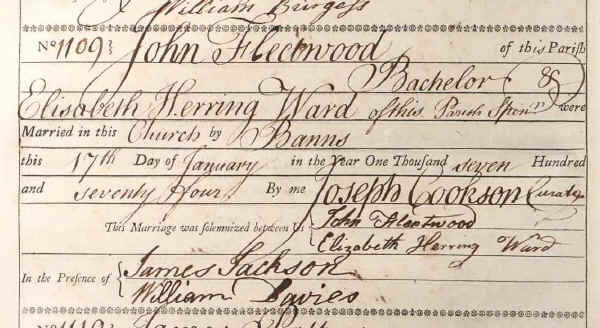 & William Burgess
No 1109 } John Fleetwood of this Parish
Bachelor } &
Elisabeth Herring Ward of this Parish Spinr were
Married in this Church by Banns
this 17th Day of January in the Year One Thousand seven Hundred
and seventy ffour By me Joseph Cookson Curate
This Marriage was solemnized between Us { John Fleetwood
Elizabeth Herring Ward
In the Presence of { James Jackson
William Davies
No 1110